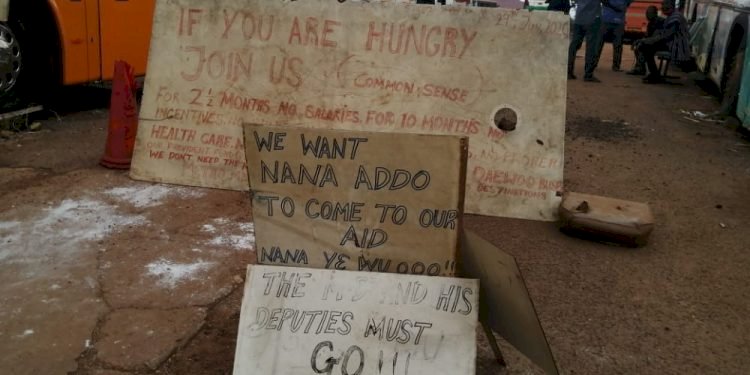 29th July 2020
IF YOU ARE HUNGRY
JOIN US (COMMON SENSE)
FOR 2½ MONTHS NO SALARIES. FOR 10 MONTHS NO
INCENTIVES.
HEALTH CARE.
WE DON'T NEED THE
DAEWOO BUSES
DESTINATIONS
WE WANT
NANA ADDO
TO COME TO OUR
AID
NANA YƐ WU OOO!!
THE M.D AND HIS
DEPUTIES MUST
GO!!!